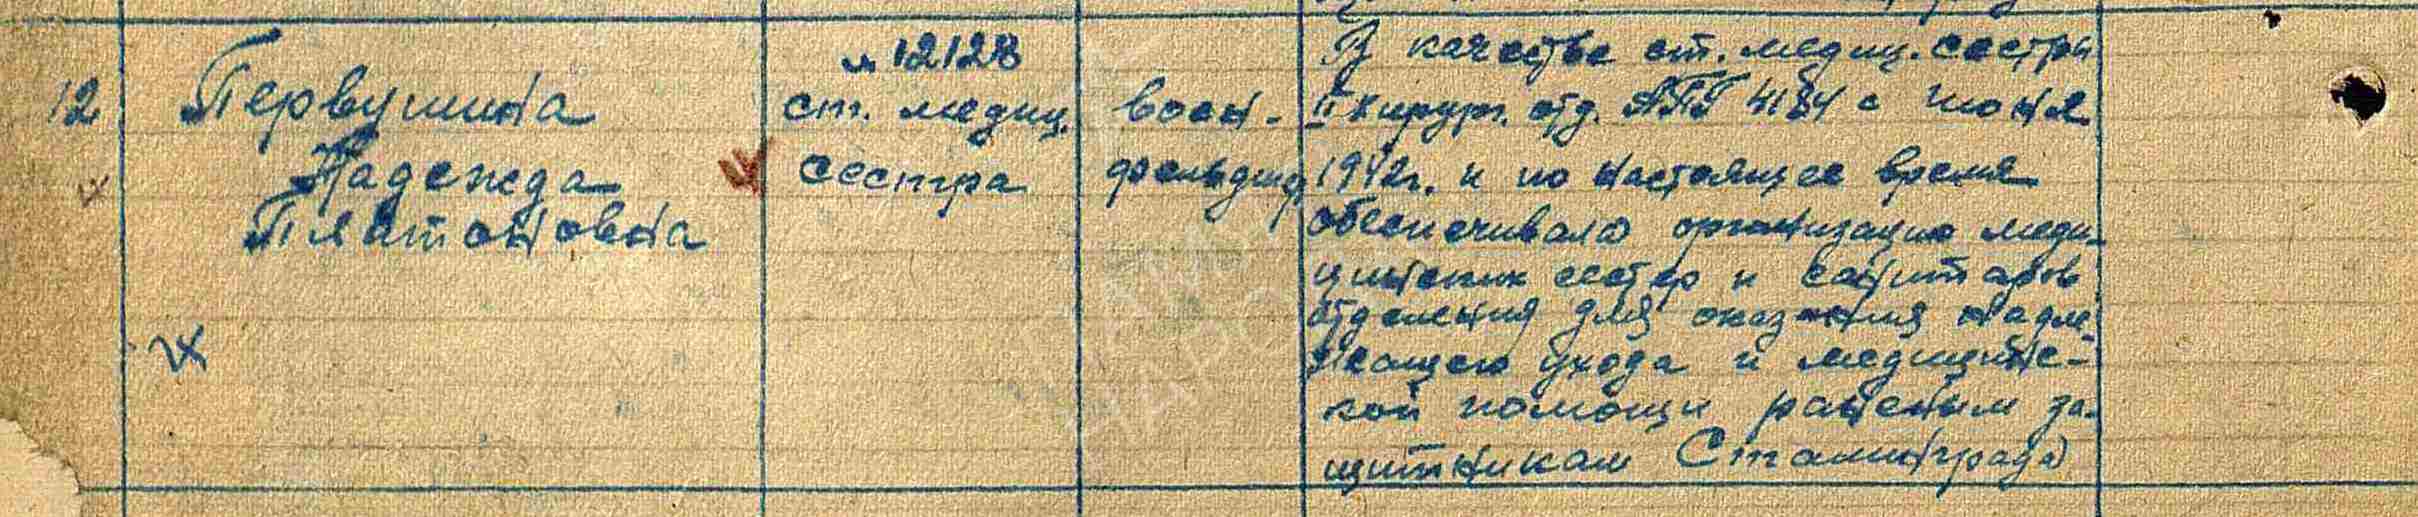 12
Первушина
Надежда
Платоновна
м 12128
ст. медиц.
сестра
воен.
фельдшер
В качестве ст. медиц. сестры
II хирург. отд. АПГ 4184 с июня
1942г. и по настоящее время
обеспечивала организацию меди-
цинских сестер и санитаров
отделения для оказания надле-
жащего ухода и медицинс-
кой помощи раненым за-
щитникам Сталинграда